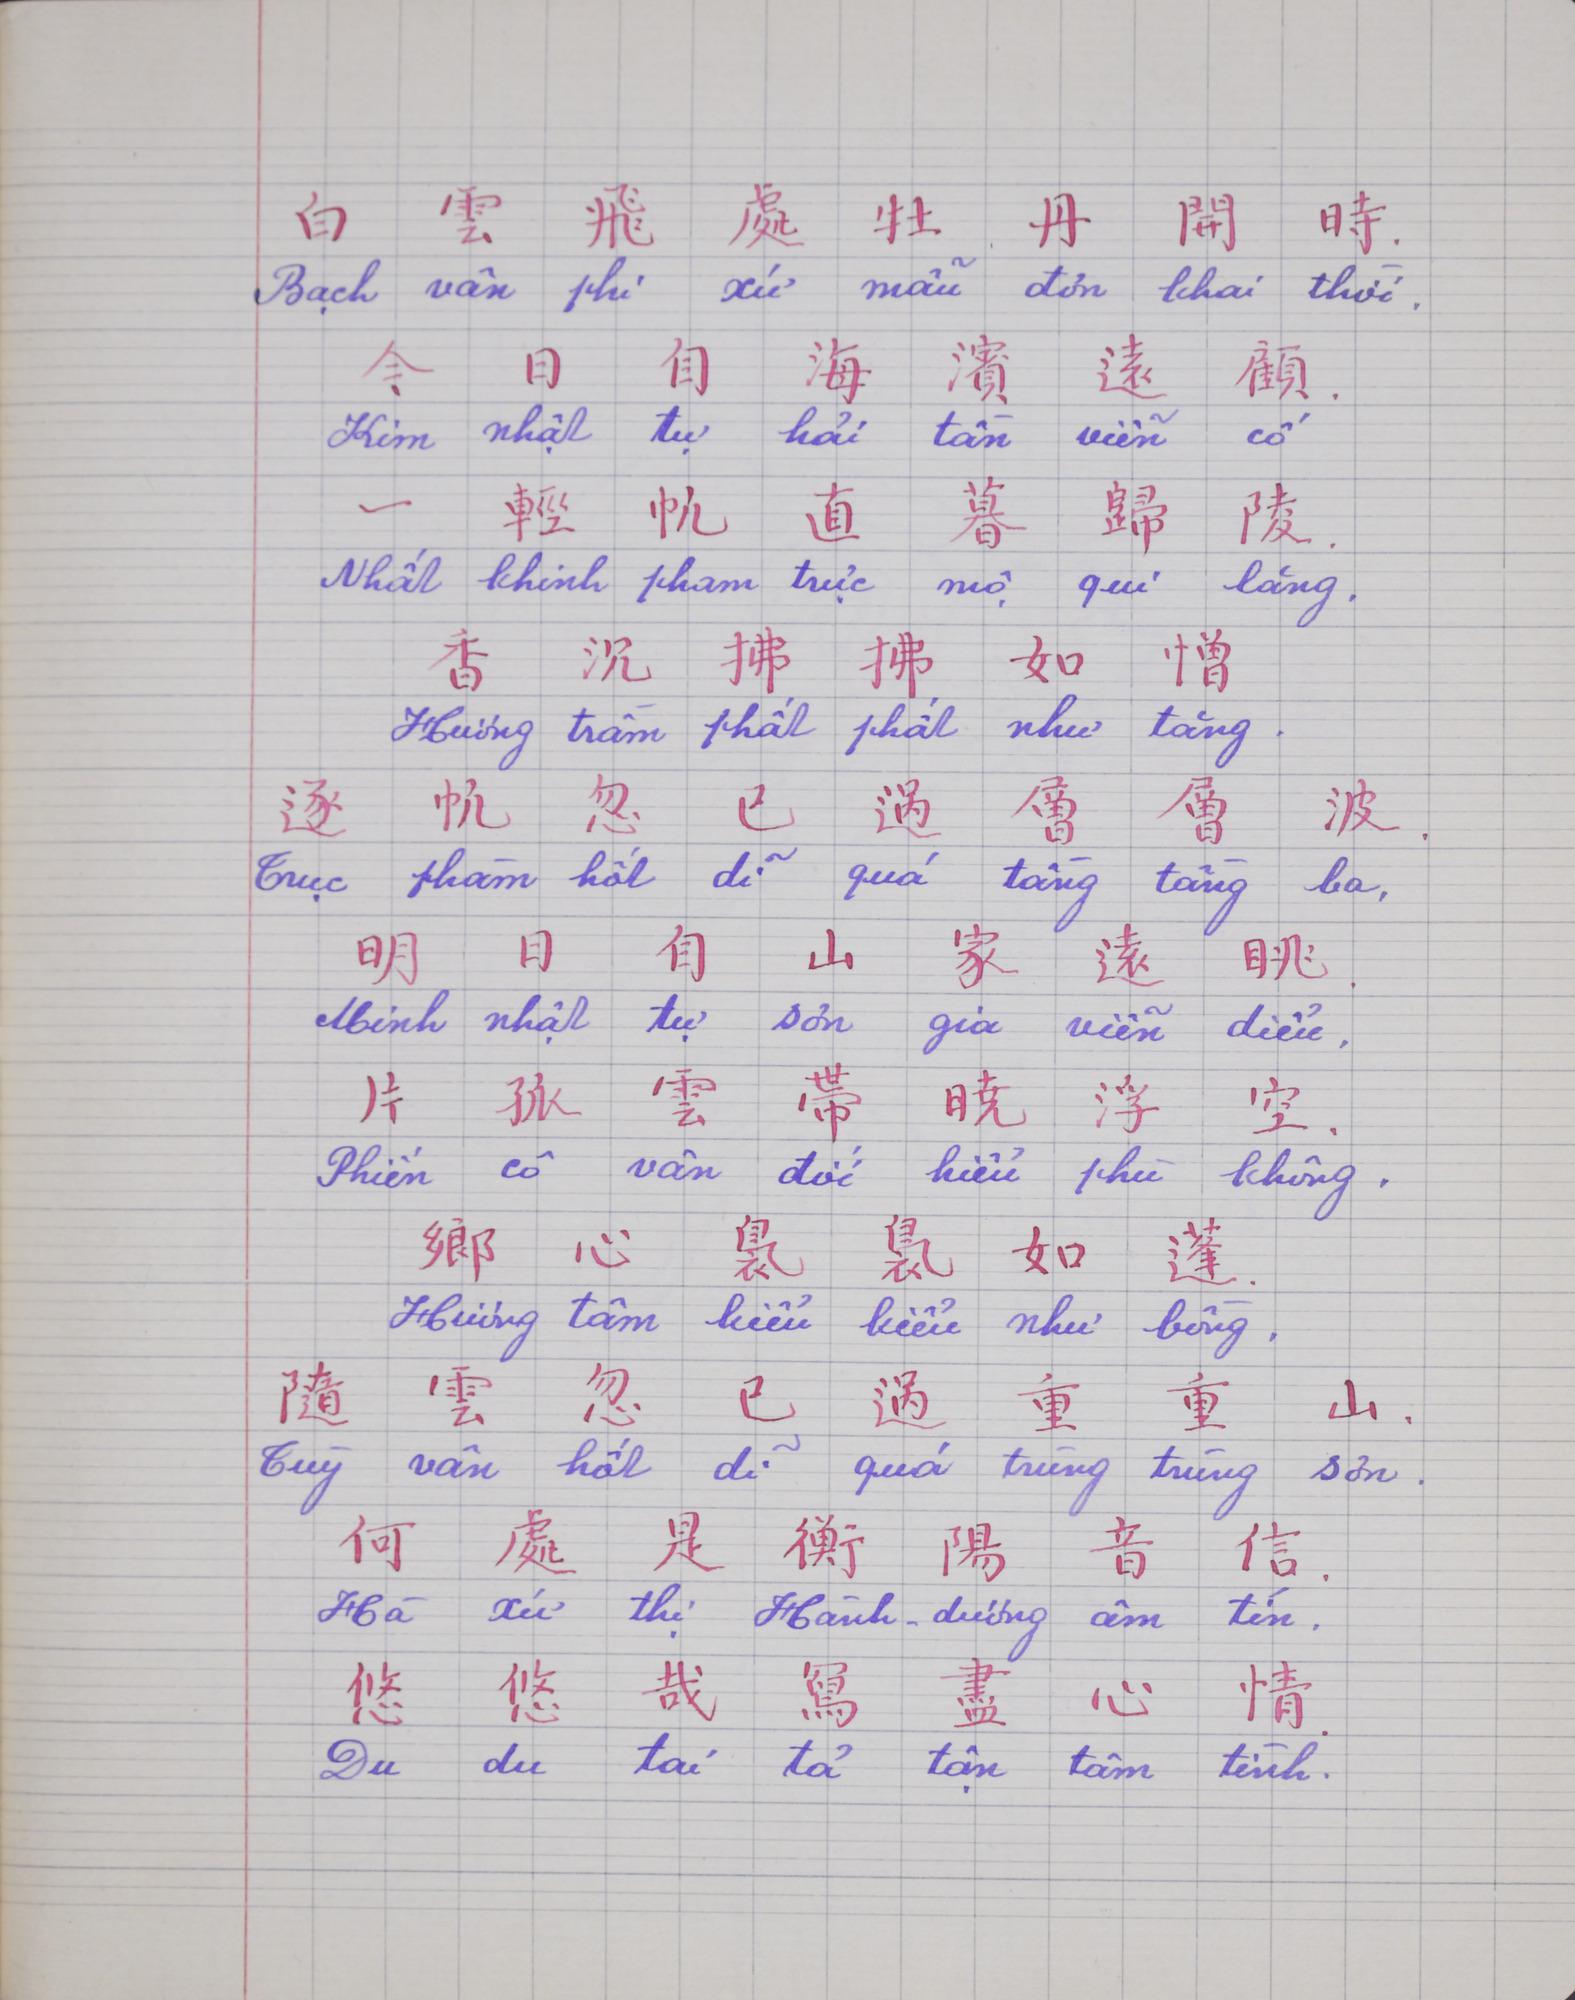 白 雲 飛 處 牡 丹 開 時.
Bạch vân phi xứ mẫu đơn khai thời.
今 日 自 海 濱 遠 顧.
Kim nhật tự hải tân viễn cố
一 輕 帆 直 暮 歸 陵.
Nhất khinh pham trực mộ qui lăng.
香 沉 拂 拂 如 憎
Hương trầm phất phất như tăng.
逐 帆 忽 已 過 層 層 波.
Trục phàm hốt dĩ quá tầng tầng ba.
明 日 自 山 家 遠 眺.
Minh nhật tự sơn gia viễn diểu.
片 孤 雲 帶 曉 浮 空.
Phiến cô vân đới hiểu phù không.
鄉 心 裊 裊 如 蓬.
Hương tâm kiểu kiểu như bồng.
隨 雲 忽 已 過 重 重 山.
Tùy vân hốt dĩ quá trùng trùng sơn.
何 處 是 衡 陽 音 信.
Hà xứ thị Hành-dương âm tín.
悠 悠 哉 寫 盡 心 情.
Du du tai tả tận tâm tình.